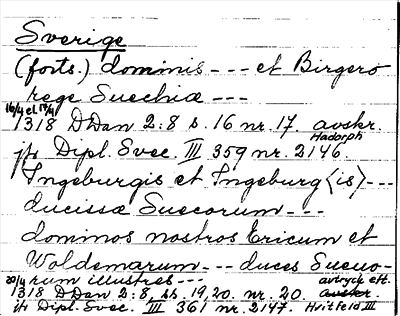 Sverige
(forts.) dominis --- et Birgero
rege Suechiæ ---
16/4 el. 17/4
1318 DDan 2:8 s. 16 nr. 17. avskr.
Hadorph
jfr Dipl. Svec. III 359 nr. 2146.
Ingeburgis et Ingeburg<is> ---
ducissæ Suecorum ---
dominos nostros Ericum et
Woldemarum --- duces Sueuo-
rum illustres ---
avtryck eft.
20/4
1318 DDan 2:8, ss. 19, 20. nr. 20. avskr.
jfr Dipl. Svec. III 361 nr. 2147. Hvitfeld III